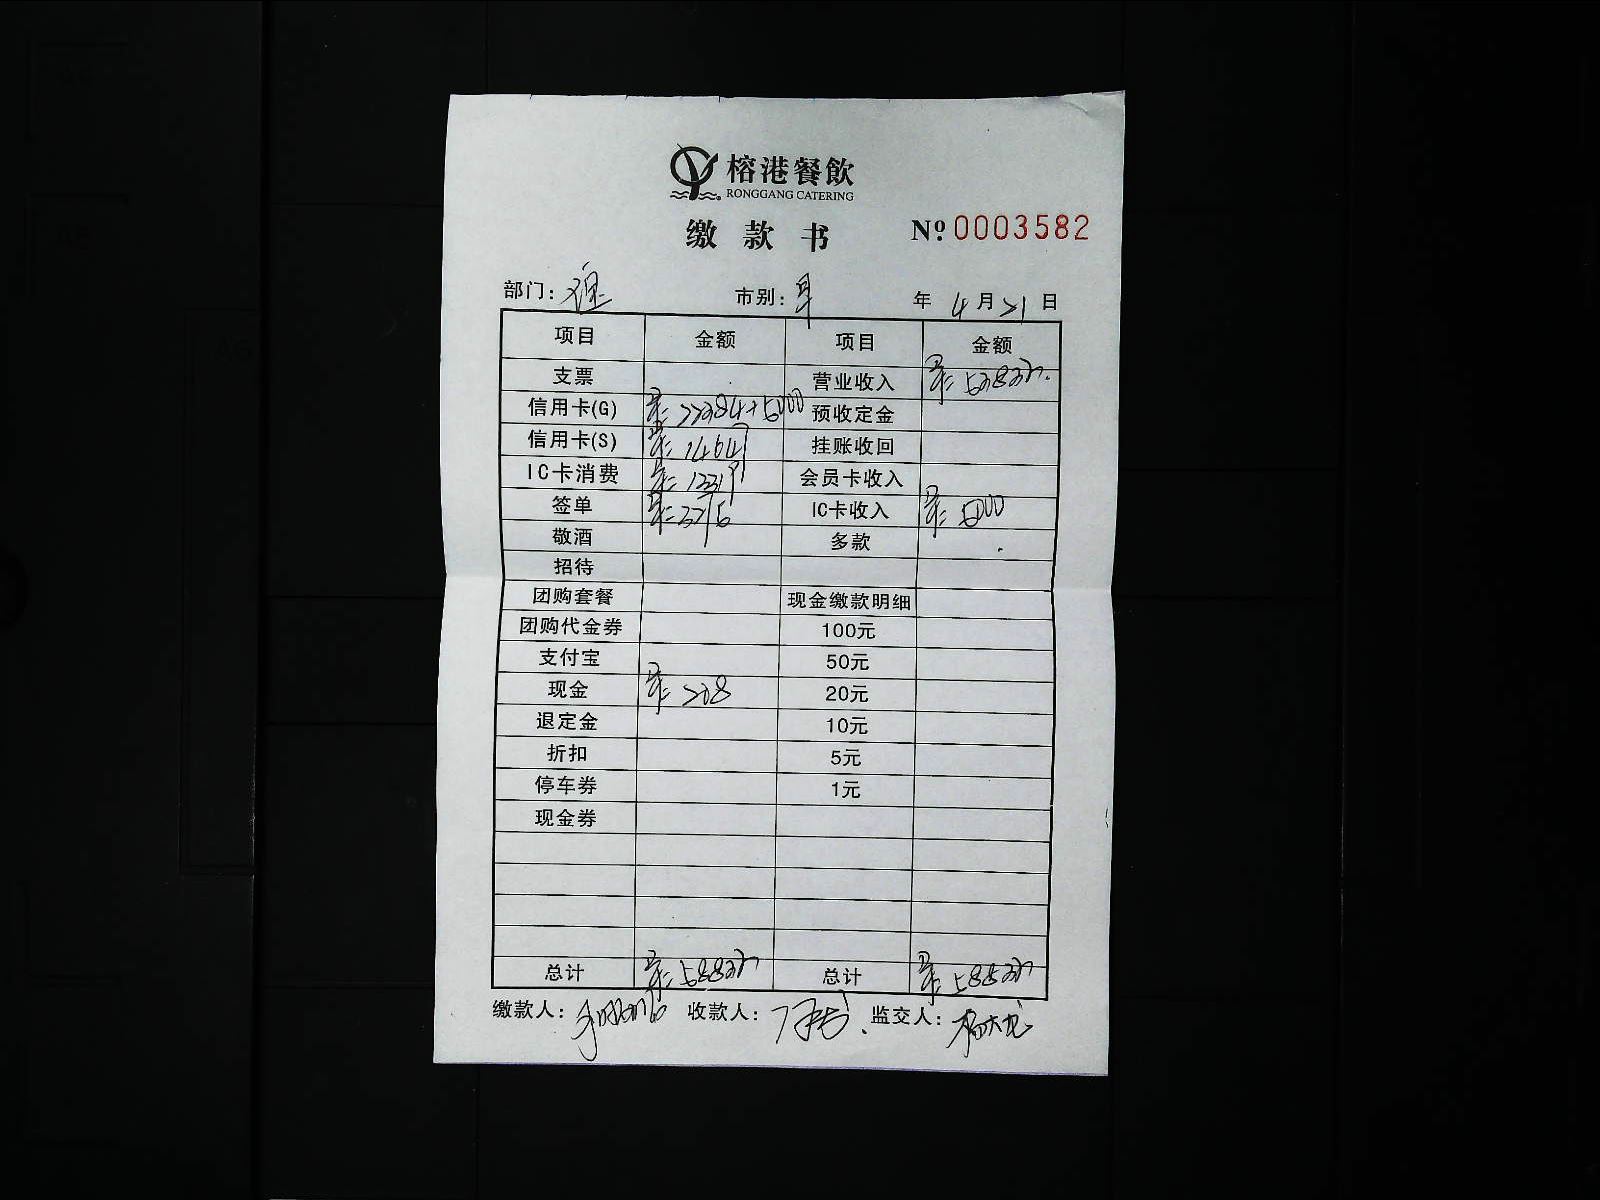 榕港餐飲
RONGGANG CATERING
缴款书 Nº.0003582
部门: 市别: 年 4月21日
项目 金额 项目 金额
支票 营业收入
信用卡(G) 22384+5000 预收定金
信用卡(S) 14647 挂账收回
IC卡消费 会员卡收入
签单 IC卡收入 5000
敬酒 多款
招待
团购套餐 现金缴款明细
团购代金券 100元
支付宝 50元
现金 208 20元
退定金 10元
折扣 5元
停车券 1元
现金券
总计 总计
缴款人: 收款人: 监交人: 杨大龙